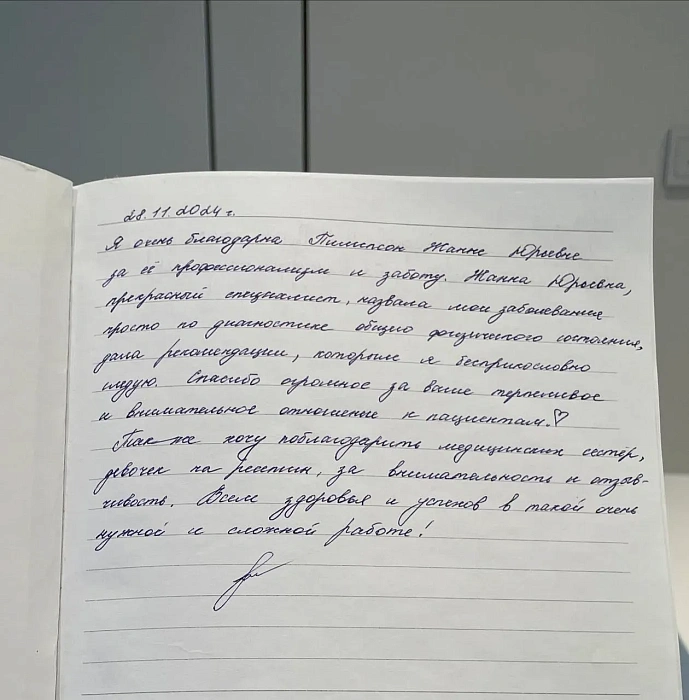 28.11.2024 г.
Я очень благодарна Пилипсон Жанне Юрьевне
за её профессионализм и заботу. Жанна Юрьевна,
прекрасный специалист, назвала мои заболевание
просто по диагностике общего физического состояния,
дала рекомендации, которым я бесприкословно
следую. Спасибо огромное за ваше терпеливое
и внимательное отношение к пациентам.♡
Так же хочу поблагодарить медицинских сестёр,
девочек на ресепшн, за внимательность и отзыв-
чивость. Всем здоровья и успехов в такой очень
нужной и сложной работе!